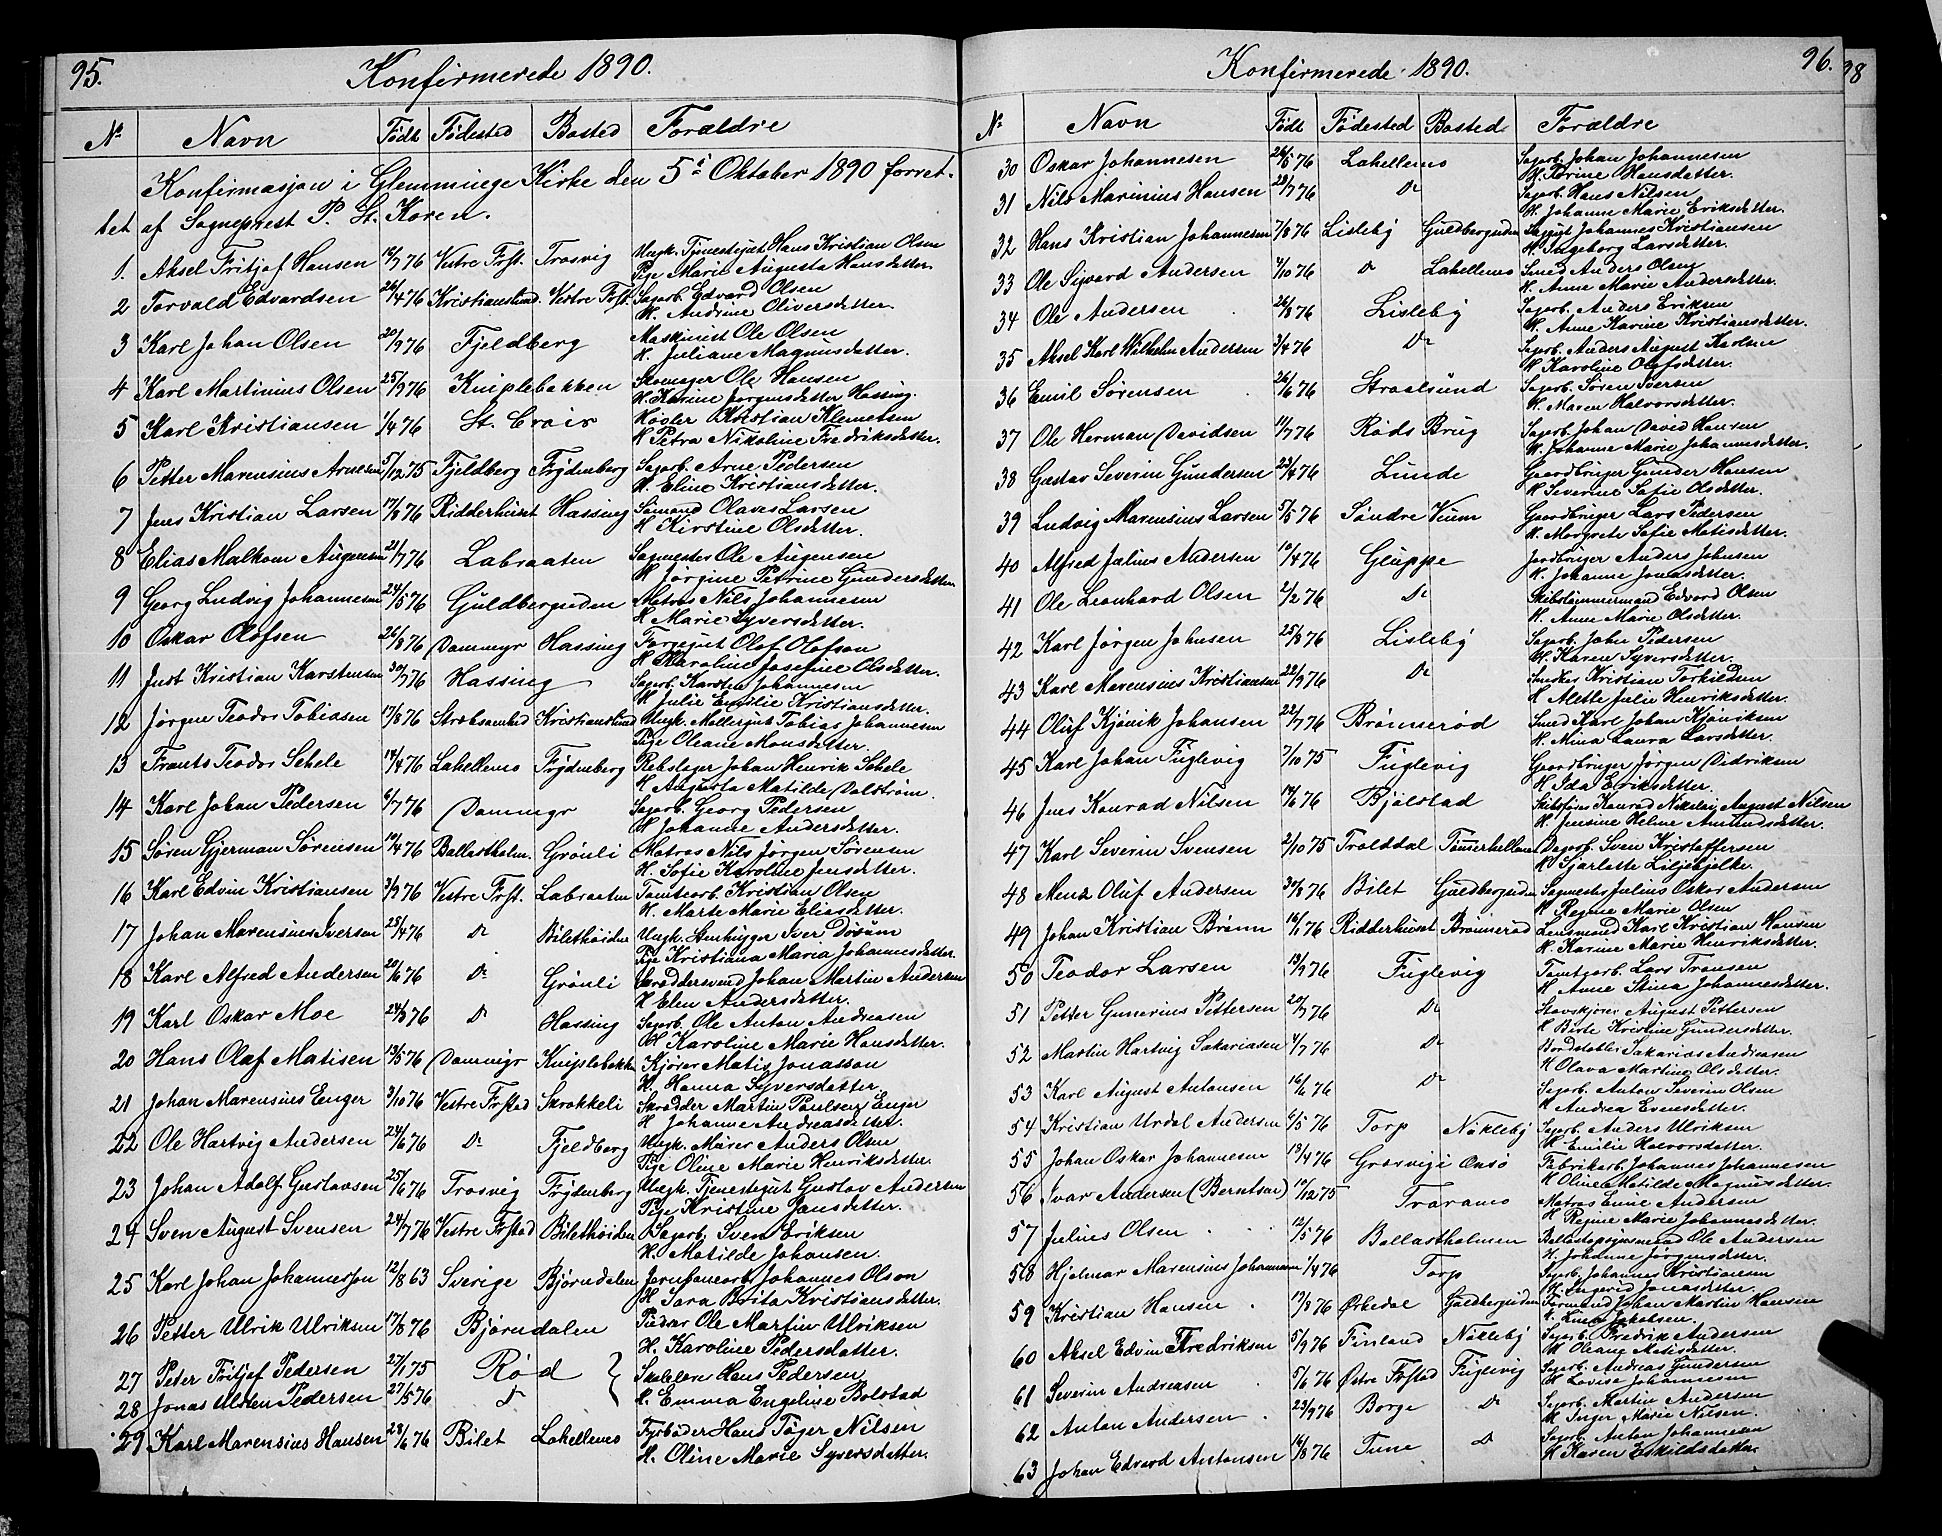 95. Konfirmerede 1890.
No Navn Födt Födested Bosted Forældre
Konfirmasjon i Glemminge Kirke den 5te Oktober 1890 forret-
tet af Sogneprest P. St. Koren.
1. Aksel Fritjof Hansen 76 Vestre Frst. Trosvig Ungk. Tjenestegut Hans Kristian Olsen
Pige Marie Augusta Hansdatter.
2 Torvald Edvardsen 26/4 76 Kristianslund Vestre Frst. Sagarb. Edvard Olsen
H. Andrine Oliversdatter.
3 Karl Johan Olsen 76 Fjeldberg Maskinist Ole Olsen
H. Juliane Magnusdatter.
4 Karl Martinius Olsen 25/9 76 Kniplebakken Skomager Ole Hansen
H. Karine Jørgensdatter Hassing.
5 Karl Kristiansen 1/4 76 St. Croix Høvler Kristian Klemetsen
H Petra Nikoline Fredriksdatter.
6 Petter Marensius Arnesen 5/12 75 Fjeldberg Frydenberg Sagarb. Arne Pedersen
H. Eline Kristiansdatter.
7 Jens Kristian Larsen 76 Ridderhuset Hassing Sømand Olaves Larsen
H Kirstine Olsdatter.
8 Elias Malkom Augensen 21/7 76 Labraaten Sagmester Ole Augensen
H Jørgine Petrine Gundersdatter
9 Georg Ludvig Johannesen 24/5 76 Guldbergsuden Matros Nils Johannesen
H Marie Syversdatter.
10 Oskar Olofsen 26/8 76 Dammyr Hassing Olof Olofson
H Karoline Josefine Olsdatter.
11 Just Kristian Karstensen 30/7 76 Hassing Sagarb. Karsten Johannesen
H Julie Emilie Kristiansdatter.
12 Jørgen Teodor Tobiasen 17/8 76 Stræbsomhed Kristianslund Ungk. Møllergut Tobias Johannesen
Pige Oleane Monsdatter.
13 Frants Teodor Schele 14/4 76 Lahellemo Frydenberg Rebslager Johan Henrik Schele
H Augusta Matilde Dalström.
14 Karl Johan Pedersen 6/7 76 Dammyr Sagarb. Georg Pedersen
H Johanne Andersdatter.
15 Søren Gjerman Sørensen 10/4 76 Ballastholm. Grönli Matros Nils Jørgen Sørensen
H. Sofie Karoline Jensdatter.
16 Karl Edvin Kristiansen 3/9 76 Vestre Frst. Labraaten Tomtearb. Kristian Olsen
H. Marte Marie Eliasdatter.
17 Johan Marensius Iversen 25/4 76 Do Bilethöiden Ungk. Stenhugger Iver Dösum
Pige Kristiana Maria Johannesdatter.
18 Karl Alfred Andersen 22/6 76 Do Grönli Skræddersvend Johan Martin Andersen
H Elen Andersdatter.
19 Karl Oskar Moe 24/3 76 Do Hassing Sagarb. Ole Anton Andreasen
H Karoline Marie Hansdatter.
20 Hans Olaf Matisen 13/5 76 Dammyr Kniplebakken Kjører Matis Jonasson
H. Hanna Syversdatter.
21 Johan Marensius Enger 3/10 76 Vestre Frstad Skrokkeli Skrædder Martin Paulsen Enger
H Johanne Andreasdatter.
22 Ole Hartvig Andersen 24/6 76 Do Fjeldberg Ungk. Murer Anders Olsen
Pige Oline Marie Henriksdatter.
23 Johan Adolf Gustavsen 25/6 76 Trosvig Frydenberg Ungk. Tjenestegut Gustav Andersen
Pige Kristine Jansdatter.
24 Sven August Svensen 24/7 76 Vestre Frstad Bilethöiden Sagarb. Sven Eriksen
H. Matilde Johansen.
25 Karl Johan Johannesson 12/8 63 Sverige Bjørndalen Jernbanearb. Johannes Olson
H Sara Brita Kristiansdatter.
26 Petter Ulrik Ulriksen 17/8 76 Bjørndalen Ole Martin Ulriksen
H. Karoline Pedersdatter.
27 Peter Fritjof Pedersen 27/1 75 Rød } Skolelærer Hans Pedersen
28 Jonas Pedersen 27/5 76 Do H. Emma Engeline Bolstad
29 Karl Marensius Hansen 28/6 76 Bilet Lahellemo Fyrböder Hans Töger Nilsen
H. Oline Marie Syversdatter.
Konfirmerede 1890. 96. 98
No Navn Födt Födested Bosted Forældre
30 Oskar Johannesen 26/5 76 Lahellemo Sagarb. Johan Johannesen
H. Torine Hansdatter.
31 Nils Marinius Hansen 28/7 76 Do Sagarb. Hans Nilsen
H. Johanne Marie Eriksdatter.
32 Hans Kristian Johannesen 7/8 76 Lisleby Guldbergsuden Johannes Kristiansen
H. Ingeborg Larsdatter.
33 Ole Sigvard Andersen 76 Do Lahellemo Smed Anders Olsen
H. Anne Marie Andersdatter.
34 Ole Andersen 26/8 76 Lisleby Sagarb. Anders Eriksen
H. Anne Karine Kristiansdatter.
35 Aksel Karl Wilhelm Andersen 3/4 76 Do Sagarb. Anders August Karlsen
H Karoline Olofsdatter.
36 Emil Sørensen 26/6 76 Straalsund Sagarb. Søren Iversen
H. Maren Halvorsdatter.
37 Ole Herman Davidsen 11/7 76 Røds Brug Sagarb. Johan David Hansen
H. Johanne Marie Johannesdatter.
38 Gustav Severin Gundersen 23/4 76 Lunde Gaardbruger Gunder Hansen
H Severine Sofie Olsdatter.
39 Ludvig Marensius Larsen 5/5 76 Søndre Veum Gaardbruger Lars Pedersen
H. Margrete Sofie Matisdatter.
40 Alfred Julius Andersen 10/4 76 Gluppe Jordbruger Anders Johnsen
H. Johanne Jonasdatter.
41 Ole Leonhard Olsen 2/2 76 Do Skibstømmermand Edvard Olsen
H. Anne Marie Olsdatter.
42 Karl Jørgen Johnsen 25/8 76 Lisleby Sagarb. John Pedersen
H. Karen Syversdatter.
43 Karl Marensius Kristiansen 22/9 76 Do Snedker Kristian Torkildsen
H Alette Julie Henriksdatter.
44 Oluf Kjönik Johansen 22/7 76 Brønnerød Smed Karl Johan Kjöniksen
H. Mina Laura Larsdatter.
45 Karl Johan Fuglevig 7/10 75 Fuglevig Gaardbruger Jørgen Didriksen
H Ida Eriksdatter.
46 Jens Konrad Nilsen 76 Bjølstad Skibsfører Konrad Nikolai August Nilsen
H. Jensine Helene Amundsdatter.
47 Karl Severin Svensen 2/10 75 Trolddal Tømerhellen Dagarb. Sven Kristoffersen
H Sjarlotte Liljebjelke.
48 Oluf Andersen 30/8 76 Bilet Guldbergsuden Sagmester Julius Oskar Andersen
H Regine Marie Olsen
49 Johan Kristian Brönn 16/1 76 Ridderhuset Brønnerød Lensmand Karl Kristian Hansen
H. Karine Marie Henriksdatter.
50 Teodor Larsen 13/9 76 Fuglevig Tomtearb. Lars Fransen
H Anne Stina Johannesdatter.
51 Petter Gunerius Pettersen 20/7 76 Do August Pettersen
H Berte Kristine Gundersdatter.
52 Martin Hartvig Sakariasen 4/7 76 Do Bordstabler Sakarias Andreasen
H Olava Martine Olsdatter.
53 Karl August Antonsen 16/6 76 Do Sagarb. Anton Severin Olsen
H Andrea Evensdatter.
54 Kristian Urdal Andersen 6/5 76 Torp Nökleby Sagarb. Anders Ulriksen
H Emilie Halvorsdatter.
55 Johan Oskar Johannesen 13/4 76 Græsvig i Onsö Fabrikarb. Johannes Johannesen
H Oline Matilde Magnusdatter.
56 Ivar Andersen (Berntsen) 10/12 75 Traramo Matros Emil Andersen
H Regine Marie Johannesdatter.
57 Julius Olsen 12/5 76 Ballastholmen Ole Andersen
H. Johanne Jørgensdatter.
58 Hjalmar Marensius Johannesen 1/4 76 Torp Sagarb. Johannes Kristiansen
H Ingerid Jonasdatter.
59 Kristian Hansen 17/8 76 Ørkedal Guldbergsuden Formand Johan Martin Hansen
H. Jakobsen.
60 Aksel Edvin Fredriksen 5/9 76 Finland Nökleby Sagarb. Fredrik Andersen
H Oleane Matisdatter.
61 Severin Andreasen 5/6 76 Østre Frstad Fuglevig Sagarb. Andreas Gundersen
H Lovise Johannesen
62 Anton Andersen 23/9 76 Borge Do Sagarb. Martin Andersen
H Inger Marie Nilsen.
63 Johan Edvard Antonsen 14/8 76 Tune Do Sagarb. Anton Johannesen
H Karen Eskildsdatter.